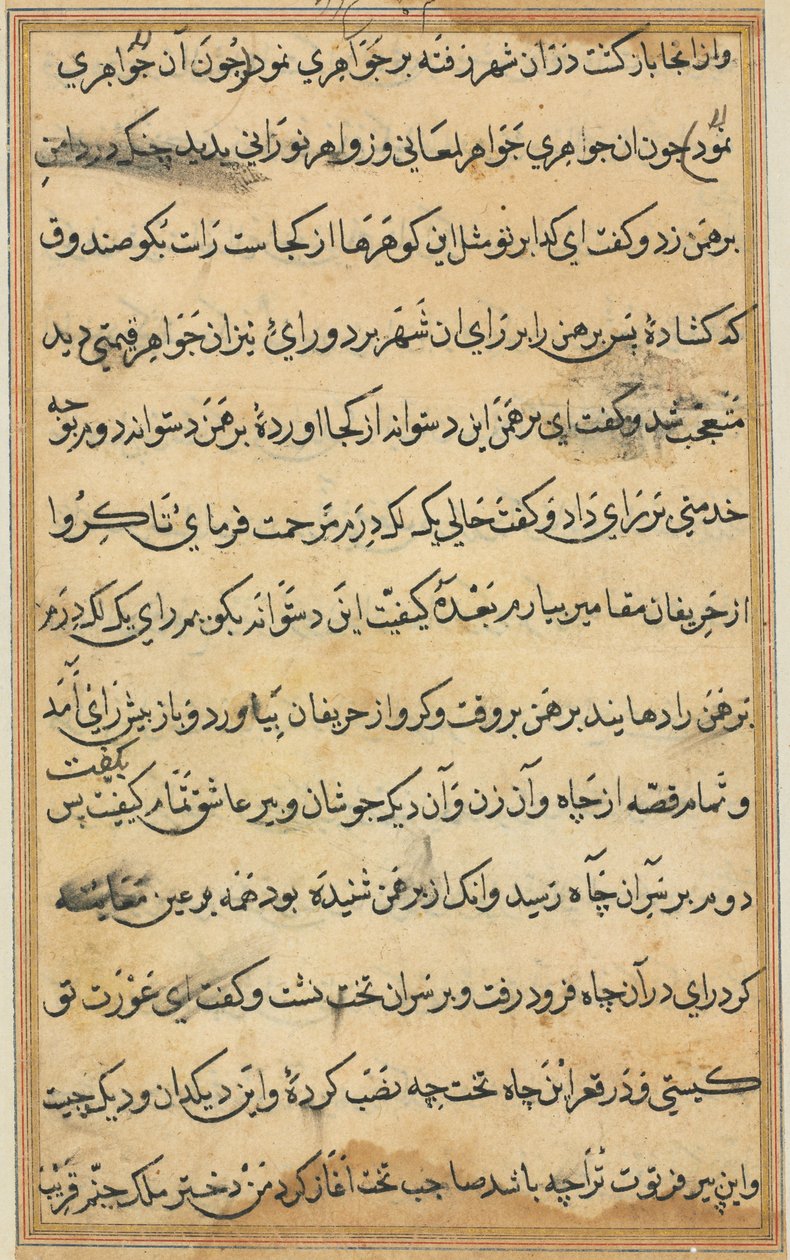 واز انجا باز كشت دران شهر رفته بر جواهري نمود چون آن جواهري
نمود جون ان جواهري جواهر لمعاني و زواهر نوراني بديد چنك در دامن
برهمن زد و كفت اي كدا بر تو مثل اين كوهرها از كجاست راست بكو صندوق
كه كشادهٔ پس برهمن را بر راي ان شهر برد و رائ نيز ان جواهر قيمتي ديد
متعجب شد و كفت اي برهمن اين دستوانه از كجا اوردهٔ برهمن دستوانه دوم بوجه
خدمتي بر راي داد و كفت حالي يك لك درم مرحمت فرمائ تا كروا
از حريفان مقامر بيارم بعده كيفيت اين دستوانه بكويم راي يك لك درم
برهمن را دهانيد برهمن بروقت و كرو از حريفان بياورد و باز بيش راي آمد
و تمام قصه از چاه وآن زن وآن ديك جوشان و پير عاشق تمام كيفيت بكفت پس
دوم بر سر ان چاه رسيد وانك از برهمن شنيده بود همه بر عين معاينه
كرد راي در آن چاه فرود رفت و بر سر ان تخت نشست و كفت اي عورت تو
كيستي و در قعر اين چاه تخت چه نصب كردهٔ واين ديكدان و ديك چيست
واين پير فرتوت ترا چه باشد صاحب تخت آغاز كرد من دختر ملك جنم قريب